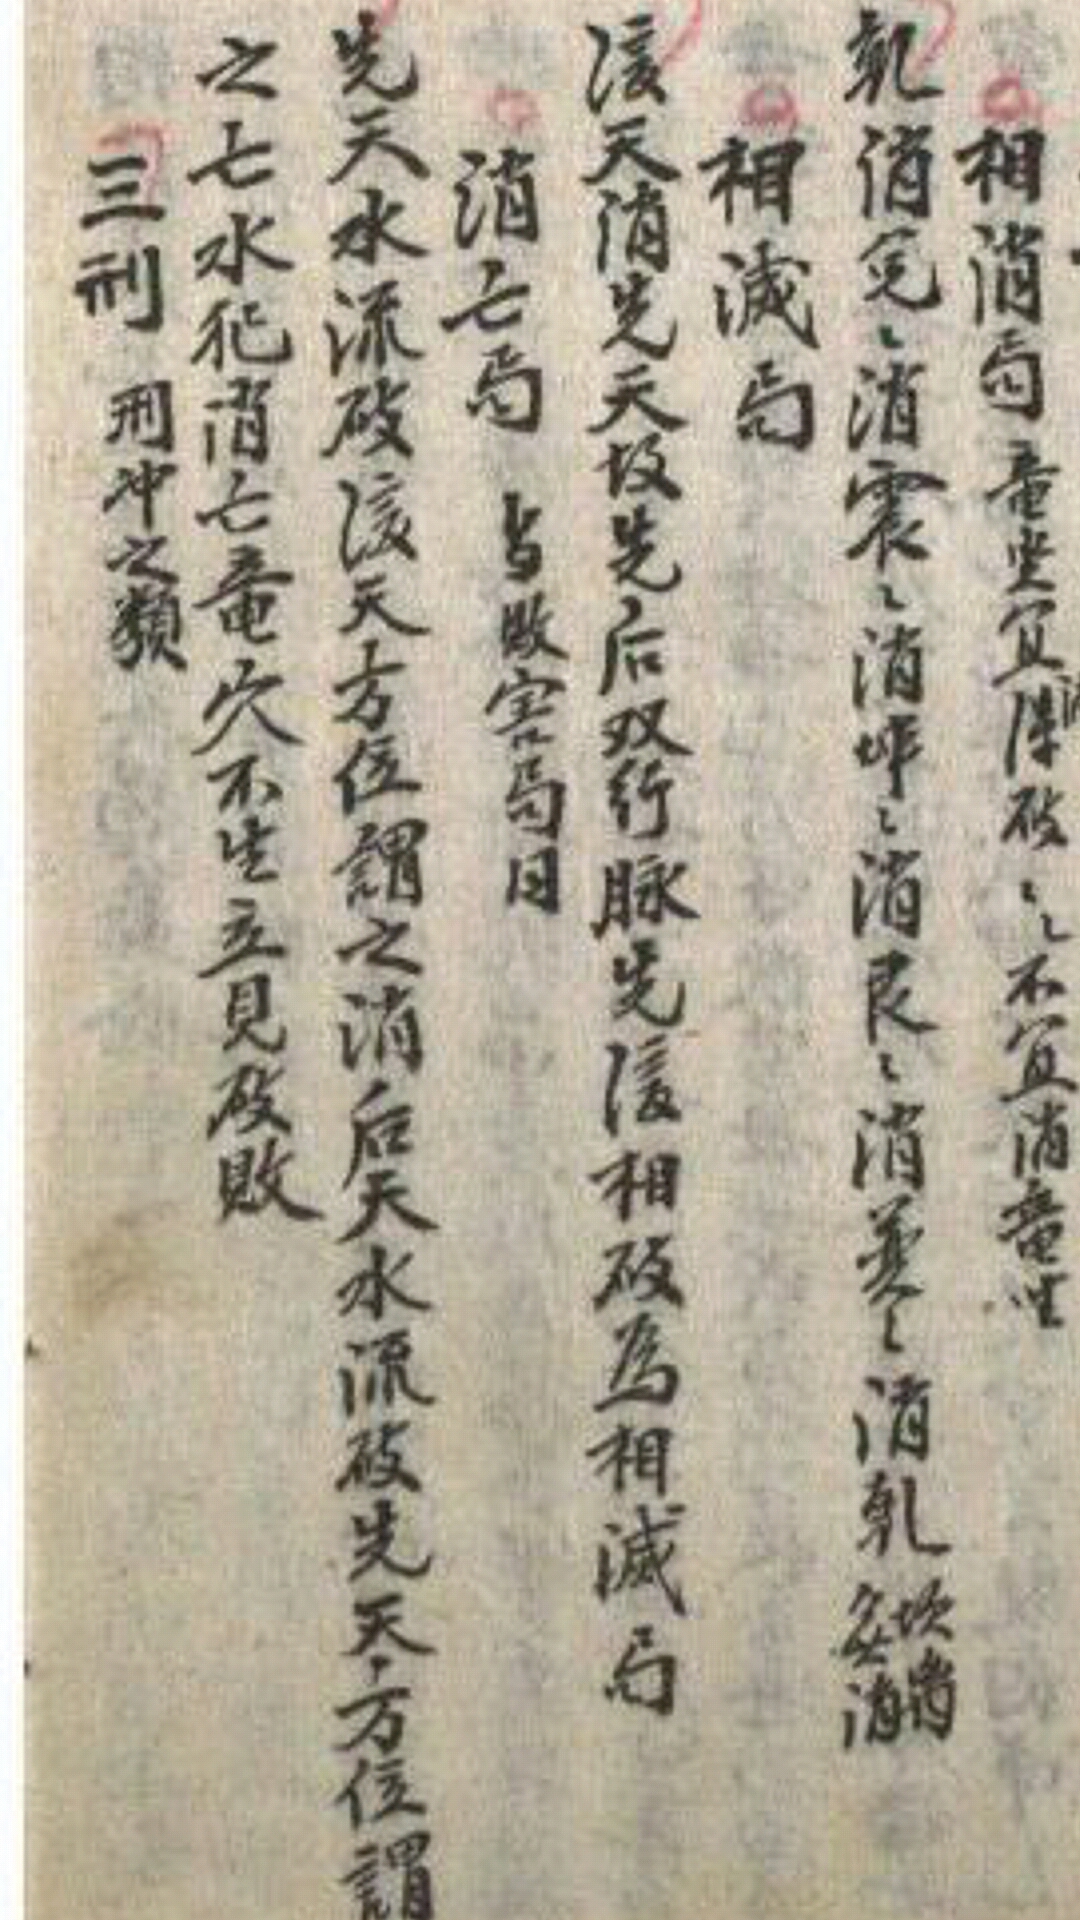 相消局 竜坐宜 破〻〻不宜消竜坐
乹消兊〻消震〻消坤〻消艮〻消巽〻消乹 坎离消
相滅局
後天消先天故先后双行脉先後相破為相滅局
消亡局 与敗害局同
先天水流破後天方位謂之消后天水流破先天方位謂
之亡水犯消亡竜穴不生立見破敗
三刑 刑冲之類